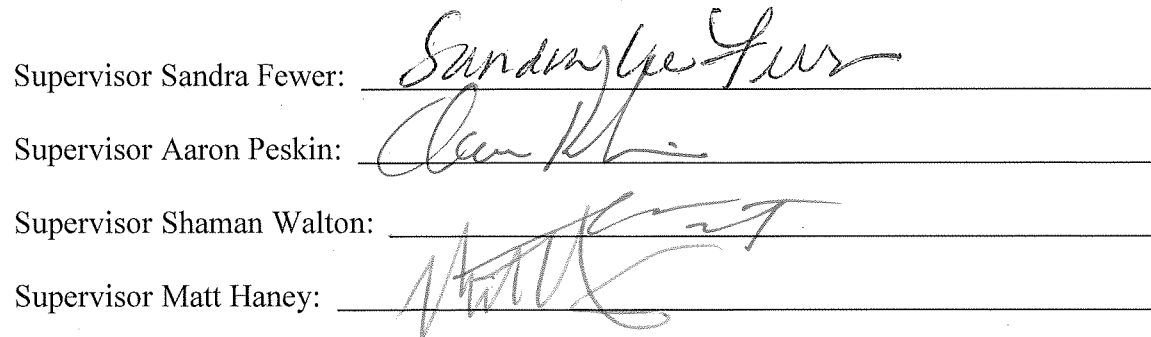 Supervisor Sandra Fewer: Sandra Lee Fewer
Supervisor Aaron Peskin:
Supervisor Shaman Walton:
Supervisor Matt Haney: